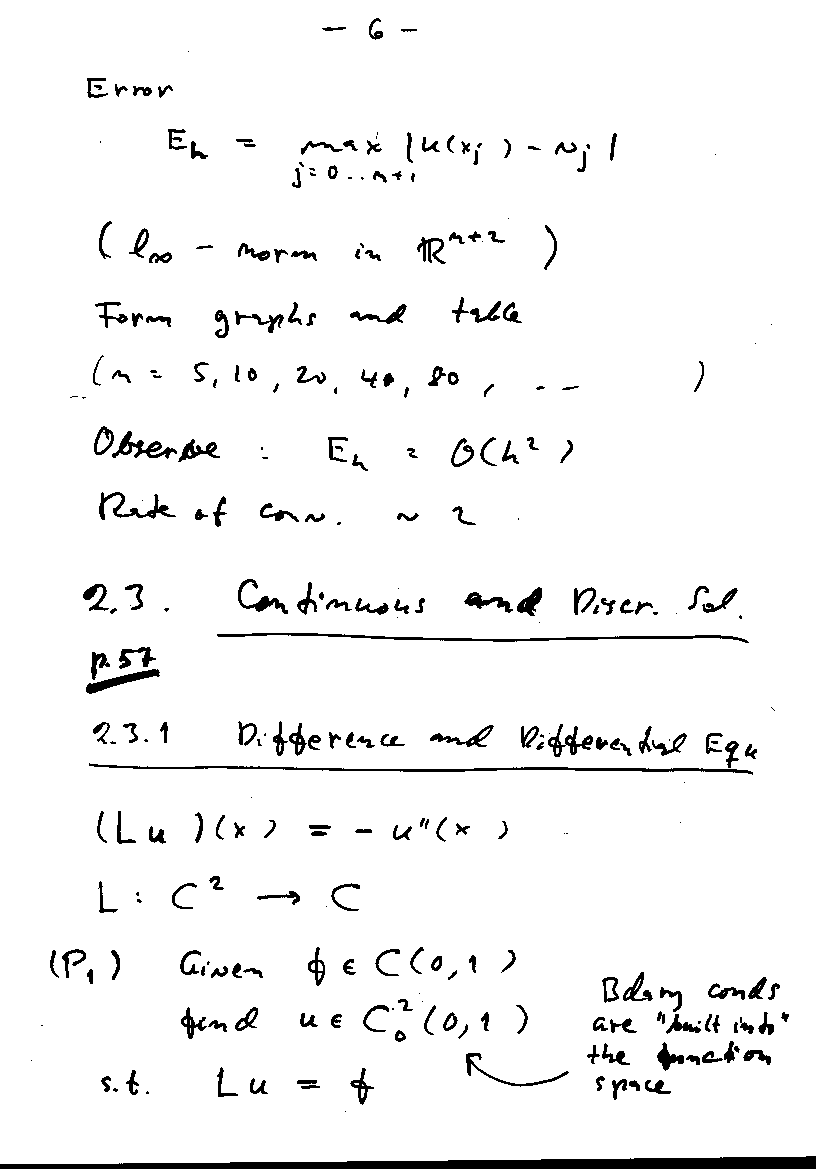 - 6 -
Error
E_h = max |u(x_j) - v_j|
j=0..n+1
(l_∞ - norm in ℝ^{n+2})
Form graphs and table
(n = 5, 10, 20, 40, 80, -- )
Observe : E_h = O(h²)
Rate of conv. ~ 2
2.3. Continuous and Discr. Sol.
p.57
2.3.1 Difference and Differential Equ
(Lu)(x) = - u"(x)
L : C² → C
(P₁) Given f ∈ C(0,1)
find u ∈ C₀²(0,1)
s.t. Lu = f
Bdary conds
are "built into"
the function
space